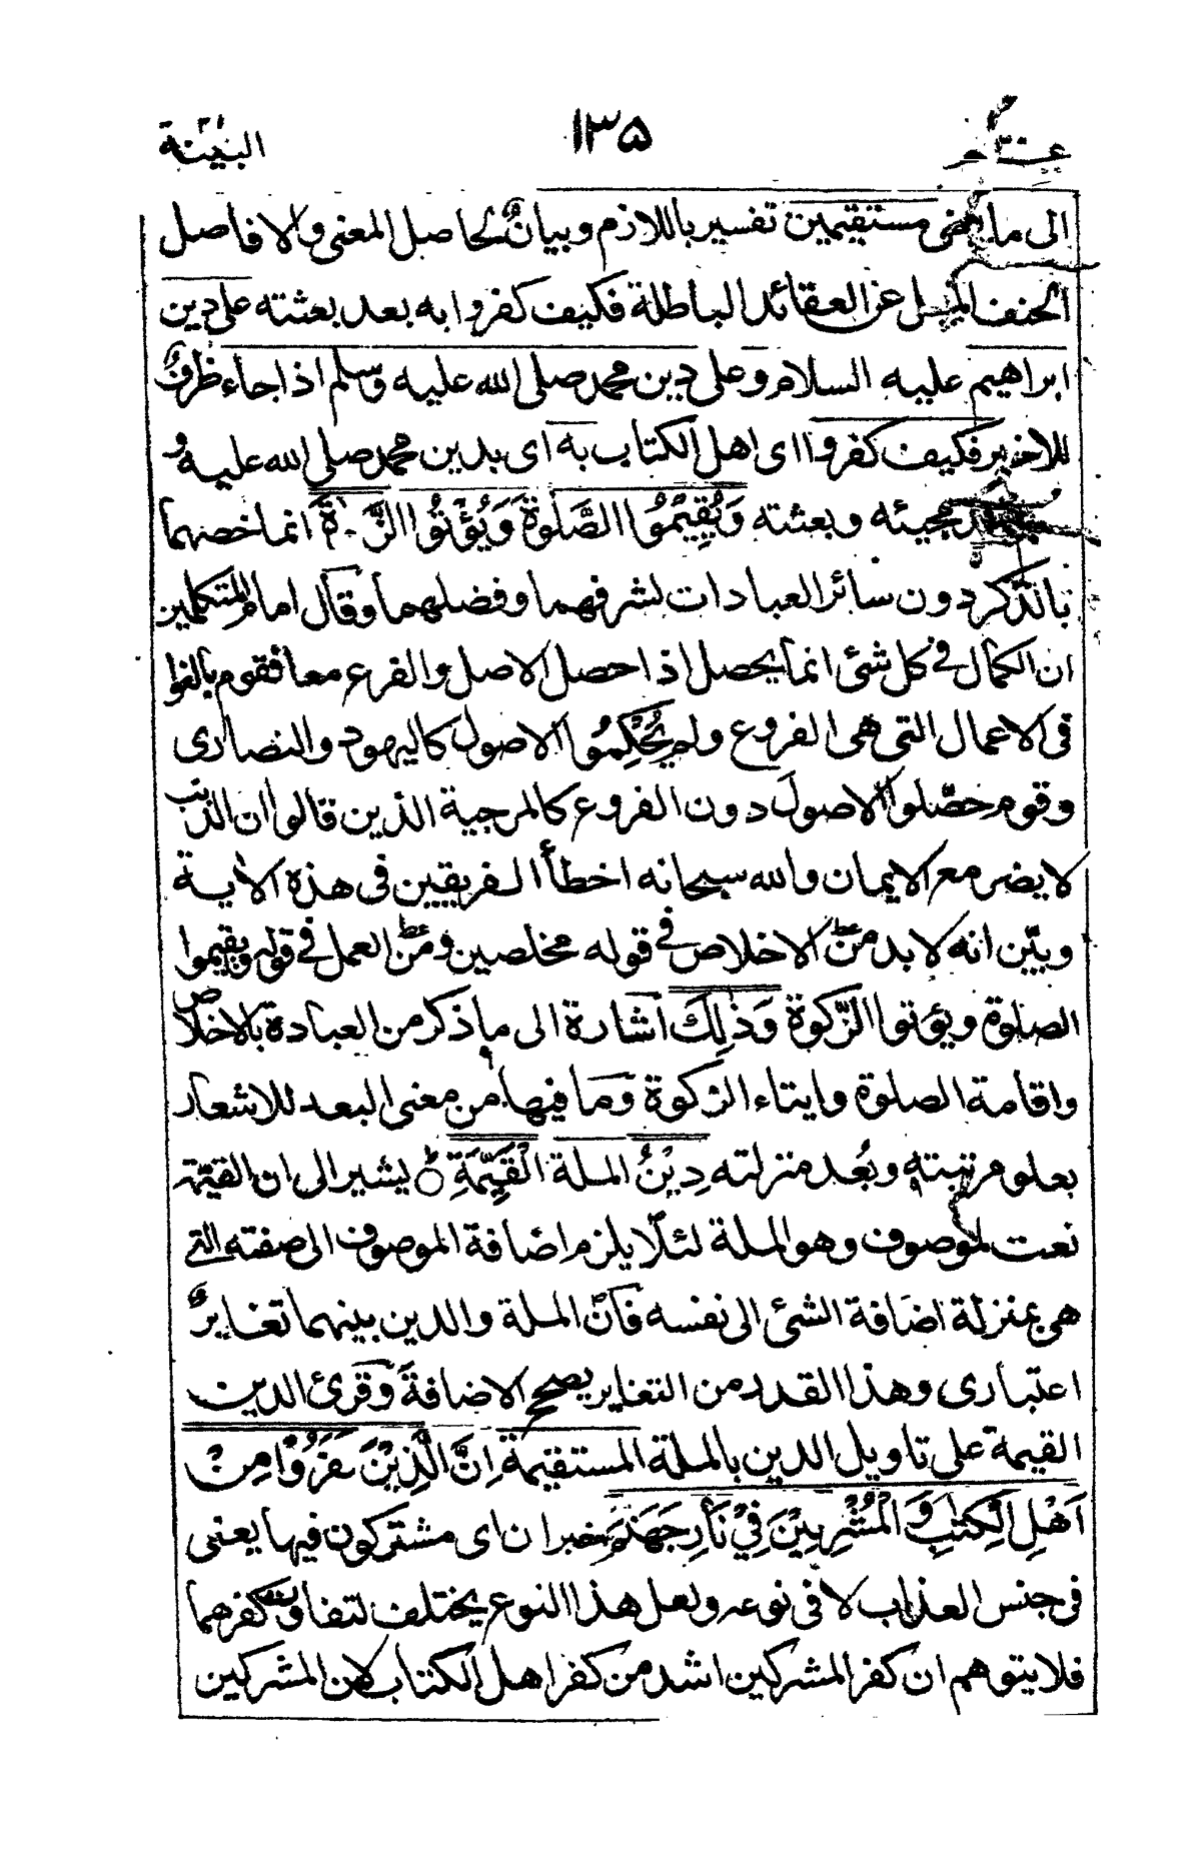 عـم ١٣٥ البينة
الى ما مضى مستقيمين تفسير باللازم وبيان لحاصل المعنى والا فاصل
الحنف الميل عن العقائد الباطلة فكيف كفروا به بعد بعثته على دين
ابراهيم عليه السلام وعلى دين محمد صلى الله عليه وسلم اذا جاء ظرف
للاخير فكيف كفروا اى اهل الكتاب به اى بدين محمد صلى الله عليه و
مجيئه وبعثته وَيُقِيْمُوا الصَّلٰوةَ وَيُؤْتُوا الزَّكٰوةَ انما خصهما
بالذكر دون سائر العبادات لشرفهما وفضلهما وقال امام المتكلمين
ان الكمال في كل شئ انما يحصل اذا حصل الاصل والفرع معا فقوم بالغوا
فى الاعمال التى هى الفروع ولم يُحْكِمُوا الاصول كاليهود والنصارى
وقوم حصّلوا الاصول دون الفروع كالمرجية الذين قالوا ان الذنب
لا يضر مع الايمان والله سبحانه اخطأ الفريقين فى هذه الاية
وبيّن انه لا بد من الاخلاص في قوله مخلصين ومن العمل في قوله ويقيموا
الصلوة ويؤتوا الزكوة وَذٰلِكَ اشارة الى ما ذكر من العبادة بالاخلاص
واقامة الصلوة وايتاء الزكوة وما فيها من معنى البعد للاشعار
بعلو مرتبته وبُعد منزلته دِيْنُ الملة الْقَيِّمَةِ ○ يشير الى ان القيّمة
نعت لموصوف وهو الملة لئلا يلزم اضافة الموصوف الى صفته التى
هى بمنزلة اضافة الشئ الى نفسه فان الملة والدين بينهما تغاير
اعتبارى وهذا القدر من التغاير يصحح الاضافة وقرئ الدين
القيمة على تاويل الدين بالملة المستقيمة اِنَّ الَّذِيْنَ كَفَرُوْا مِنْ
اَهْلِ الْكِتٰبِ وَالْمُشْرِكِيْنَ فِيْ نَارِ جَهَنَّمَ خبر ان اى مشتركون فيها يعنى
فى جنس العذاب لا فى نوعه ولعل هذا النوع يختلف لتفاوت كفرهما
فلا يتوهم ان كفر المشركين اشد من كفر اهل الكتاب لان المشركين